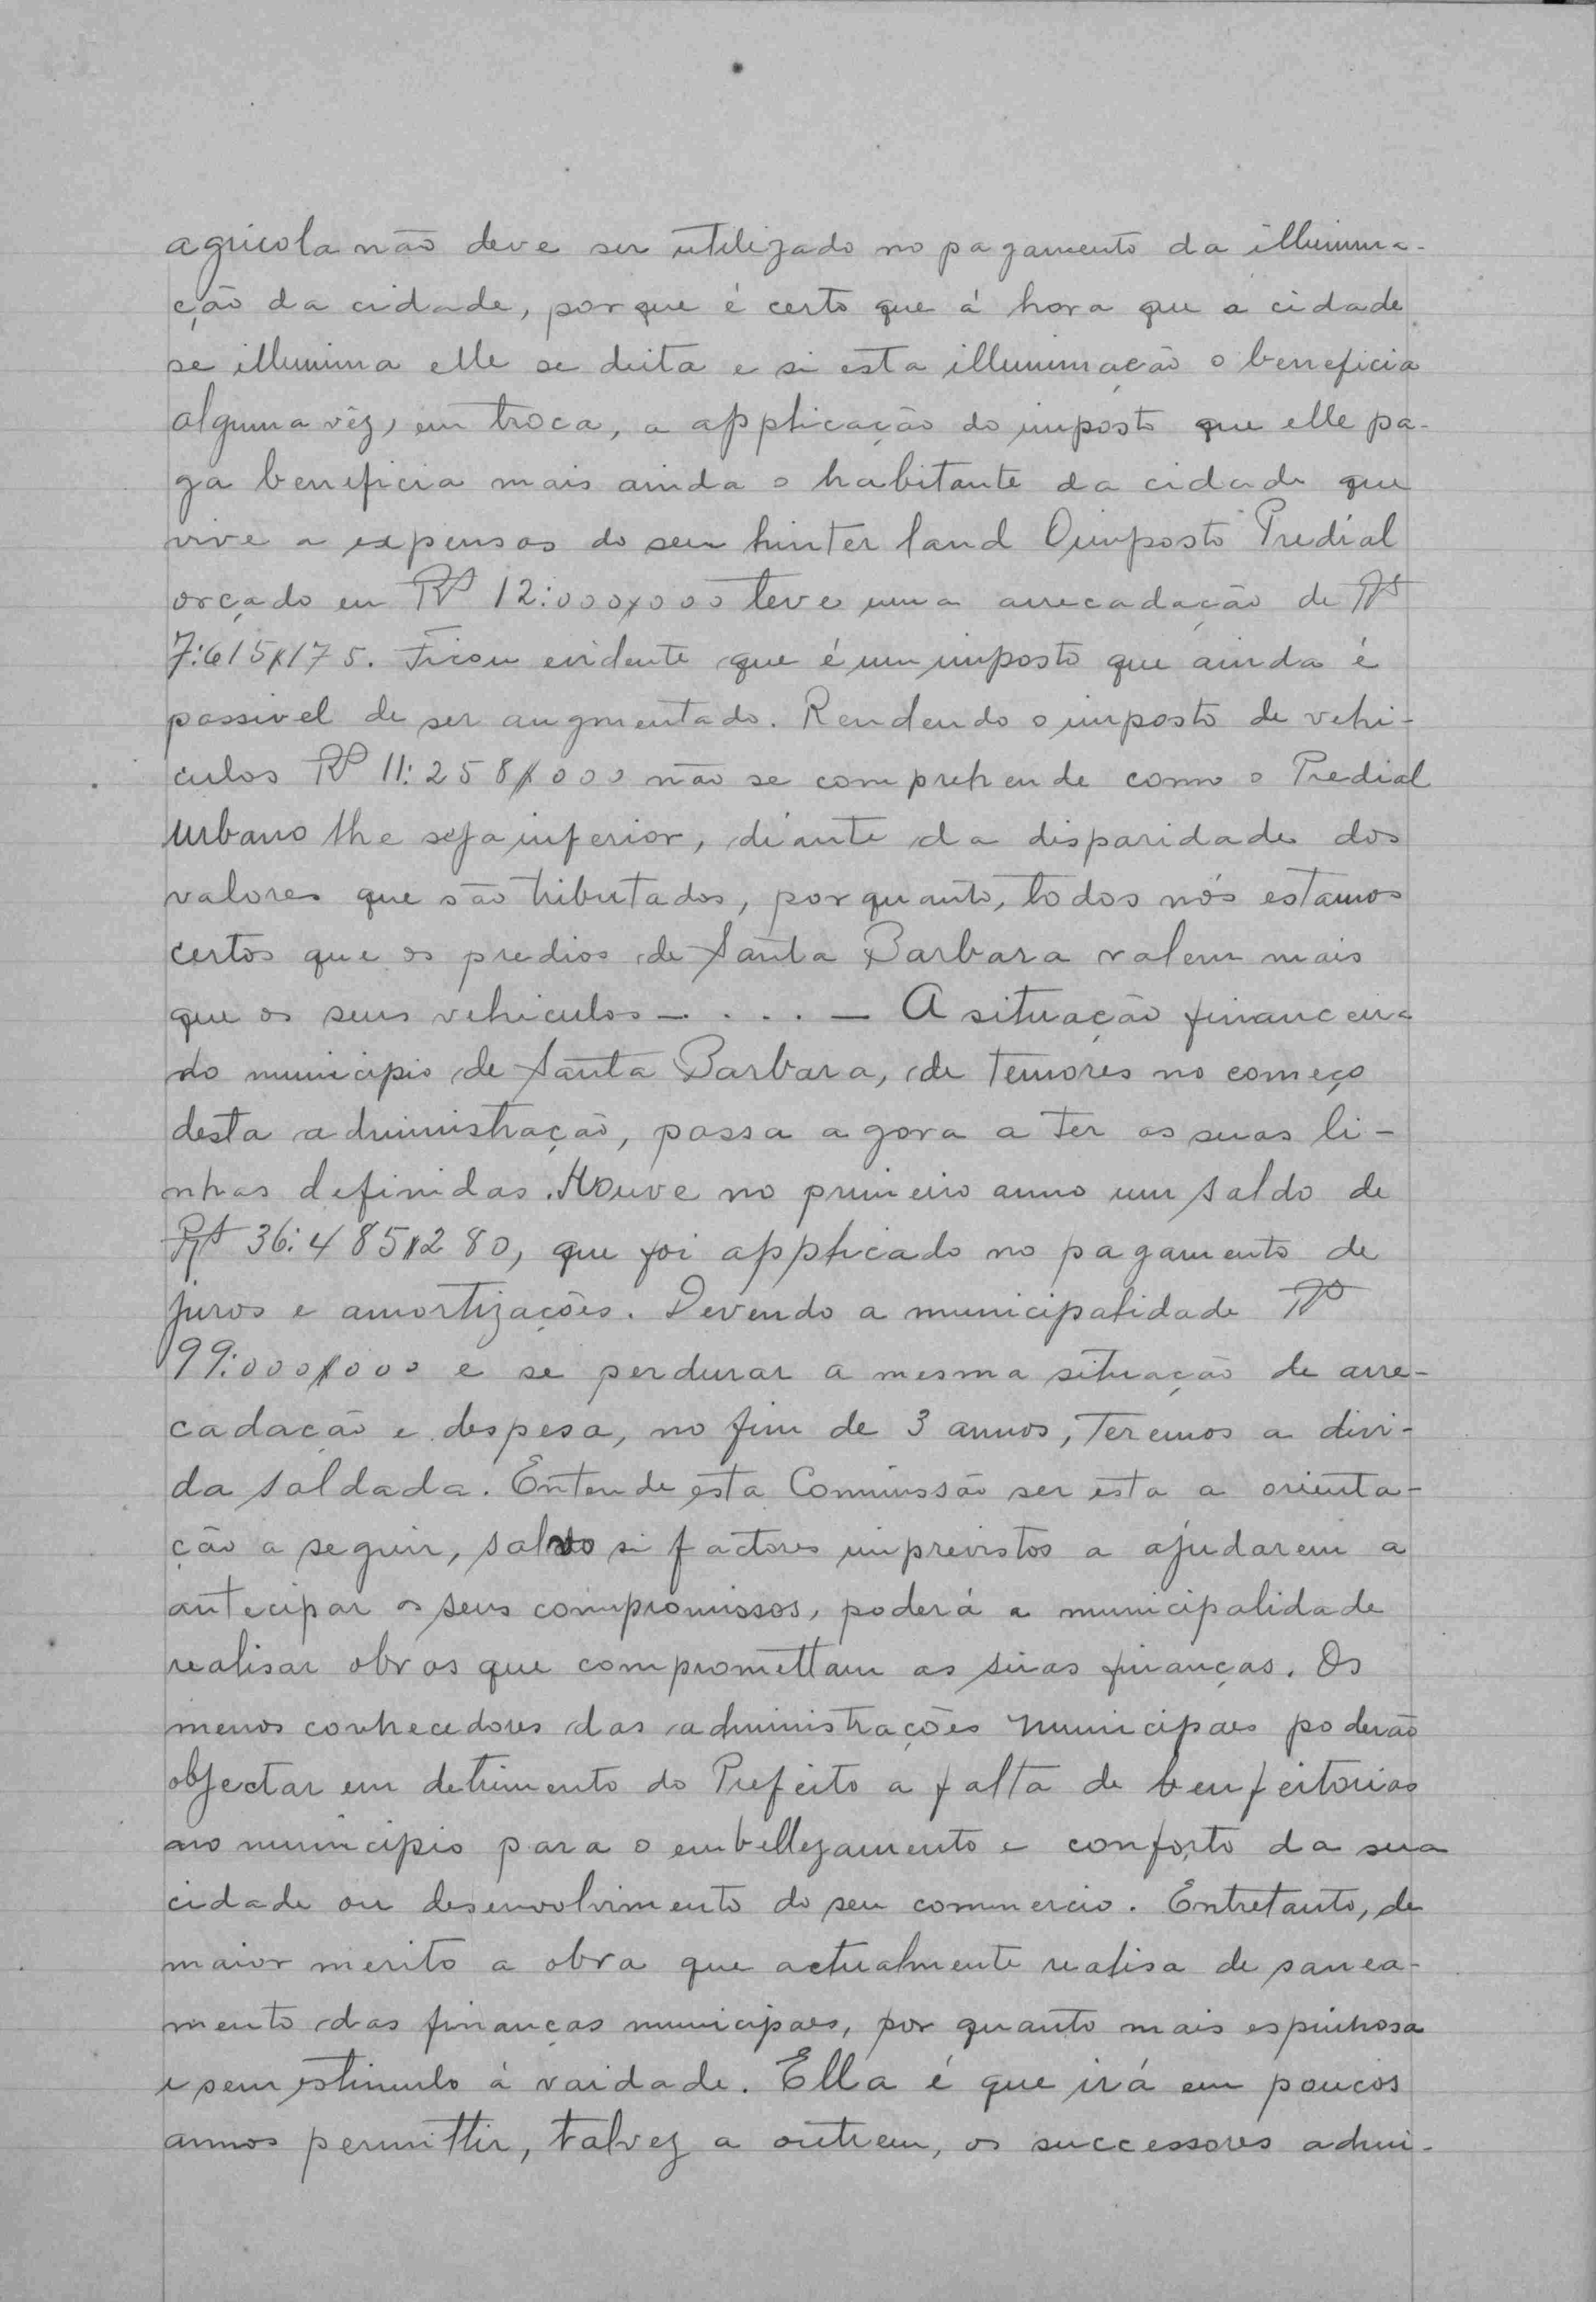 agricola não deve ser utilizado no pagamento da illumina-
ção da cidade, porque é certo que á hora que a cidade
se illumina elle se deita e si esta illuminação o beneficia
alguma vêz, em troca, a applicação do imposto que elle pa-
ga beneficia mais ainda o habitante da cidade que
vive a expensas do seu hinter land O imposto Predial
orçado em Rs 12:000$000 teve uma arrecadação de Rs
7:615$175. Ficou evidente que é um imposto que ainda é
passivel de ser augmentado. Rendendo o imposto de vehi-
culos Rs 11:258$000 não se comprehende como o Predial
Urbano lhe seja inferior, diante da disparidade dos
valores que são tributados, porquanto, todos nós estamos
certos que os predios de Santa Barbara valem mais
que os seus vehiculos — . . . . — A situação financeira
do municipio de Santa Barbara, de temores no começo
desta administração, passa agora a ter as suas li-
nhas definidas. Houve no primeiro anno um saldo de
Rs 36:485$280, que foi applicado no pagamento de
juros e amortizações. Devendo a municipalidade Rs
99:000$000 e se perdurar a mesma situação de arre-
cadação e despesa, no fim de 3 annos, teremos a divi-
da saldada. Entende esta Commissão ser esta a orienta-
ção a seguir, salvo si factores imprevistos a ajudarem a
antecipar os seus compromissos, poderá a municipalidade
realisar obras que compromettam as suas finanças. Os
menos conhecedores das administrações municipaes poderão
objectar em detrimento do Prefeito a falta de bemfeitorias
ao municipio para o embellezamento e conforto da sua
cidade ou desenvolvimento do seu commercio. Entretanto, de
maior merito a obra que actualmente realisa de sanea-
mento das finanças municipaes, por quanto mais espinhosa
e sem estimulo á vaidade. Ella é que irá em poucos
annos permittir, talvez a outrem, os successores admi-